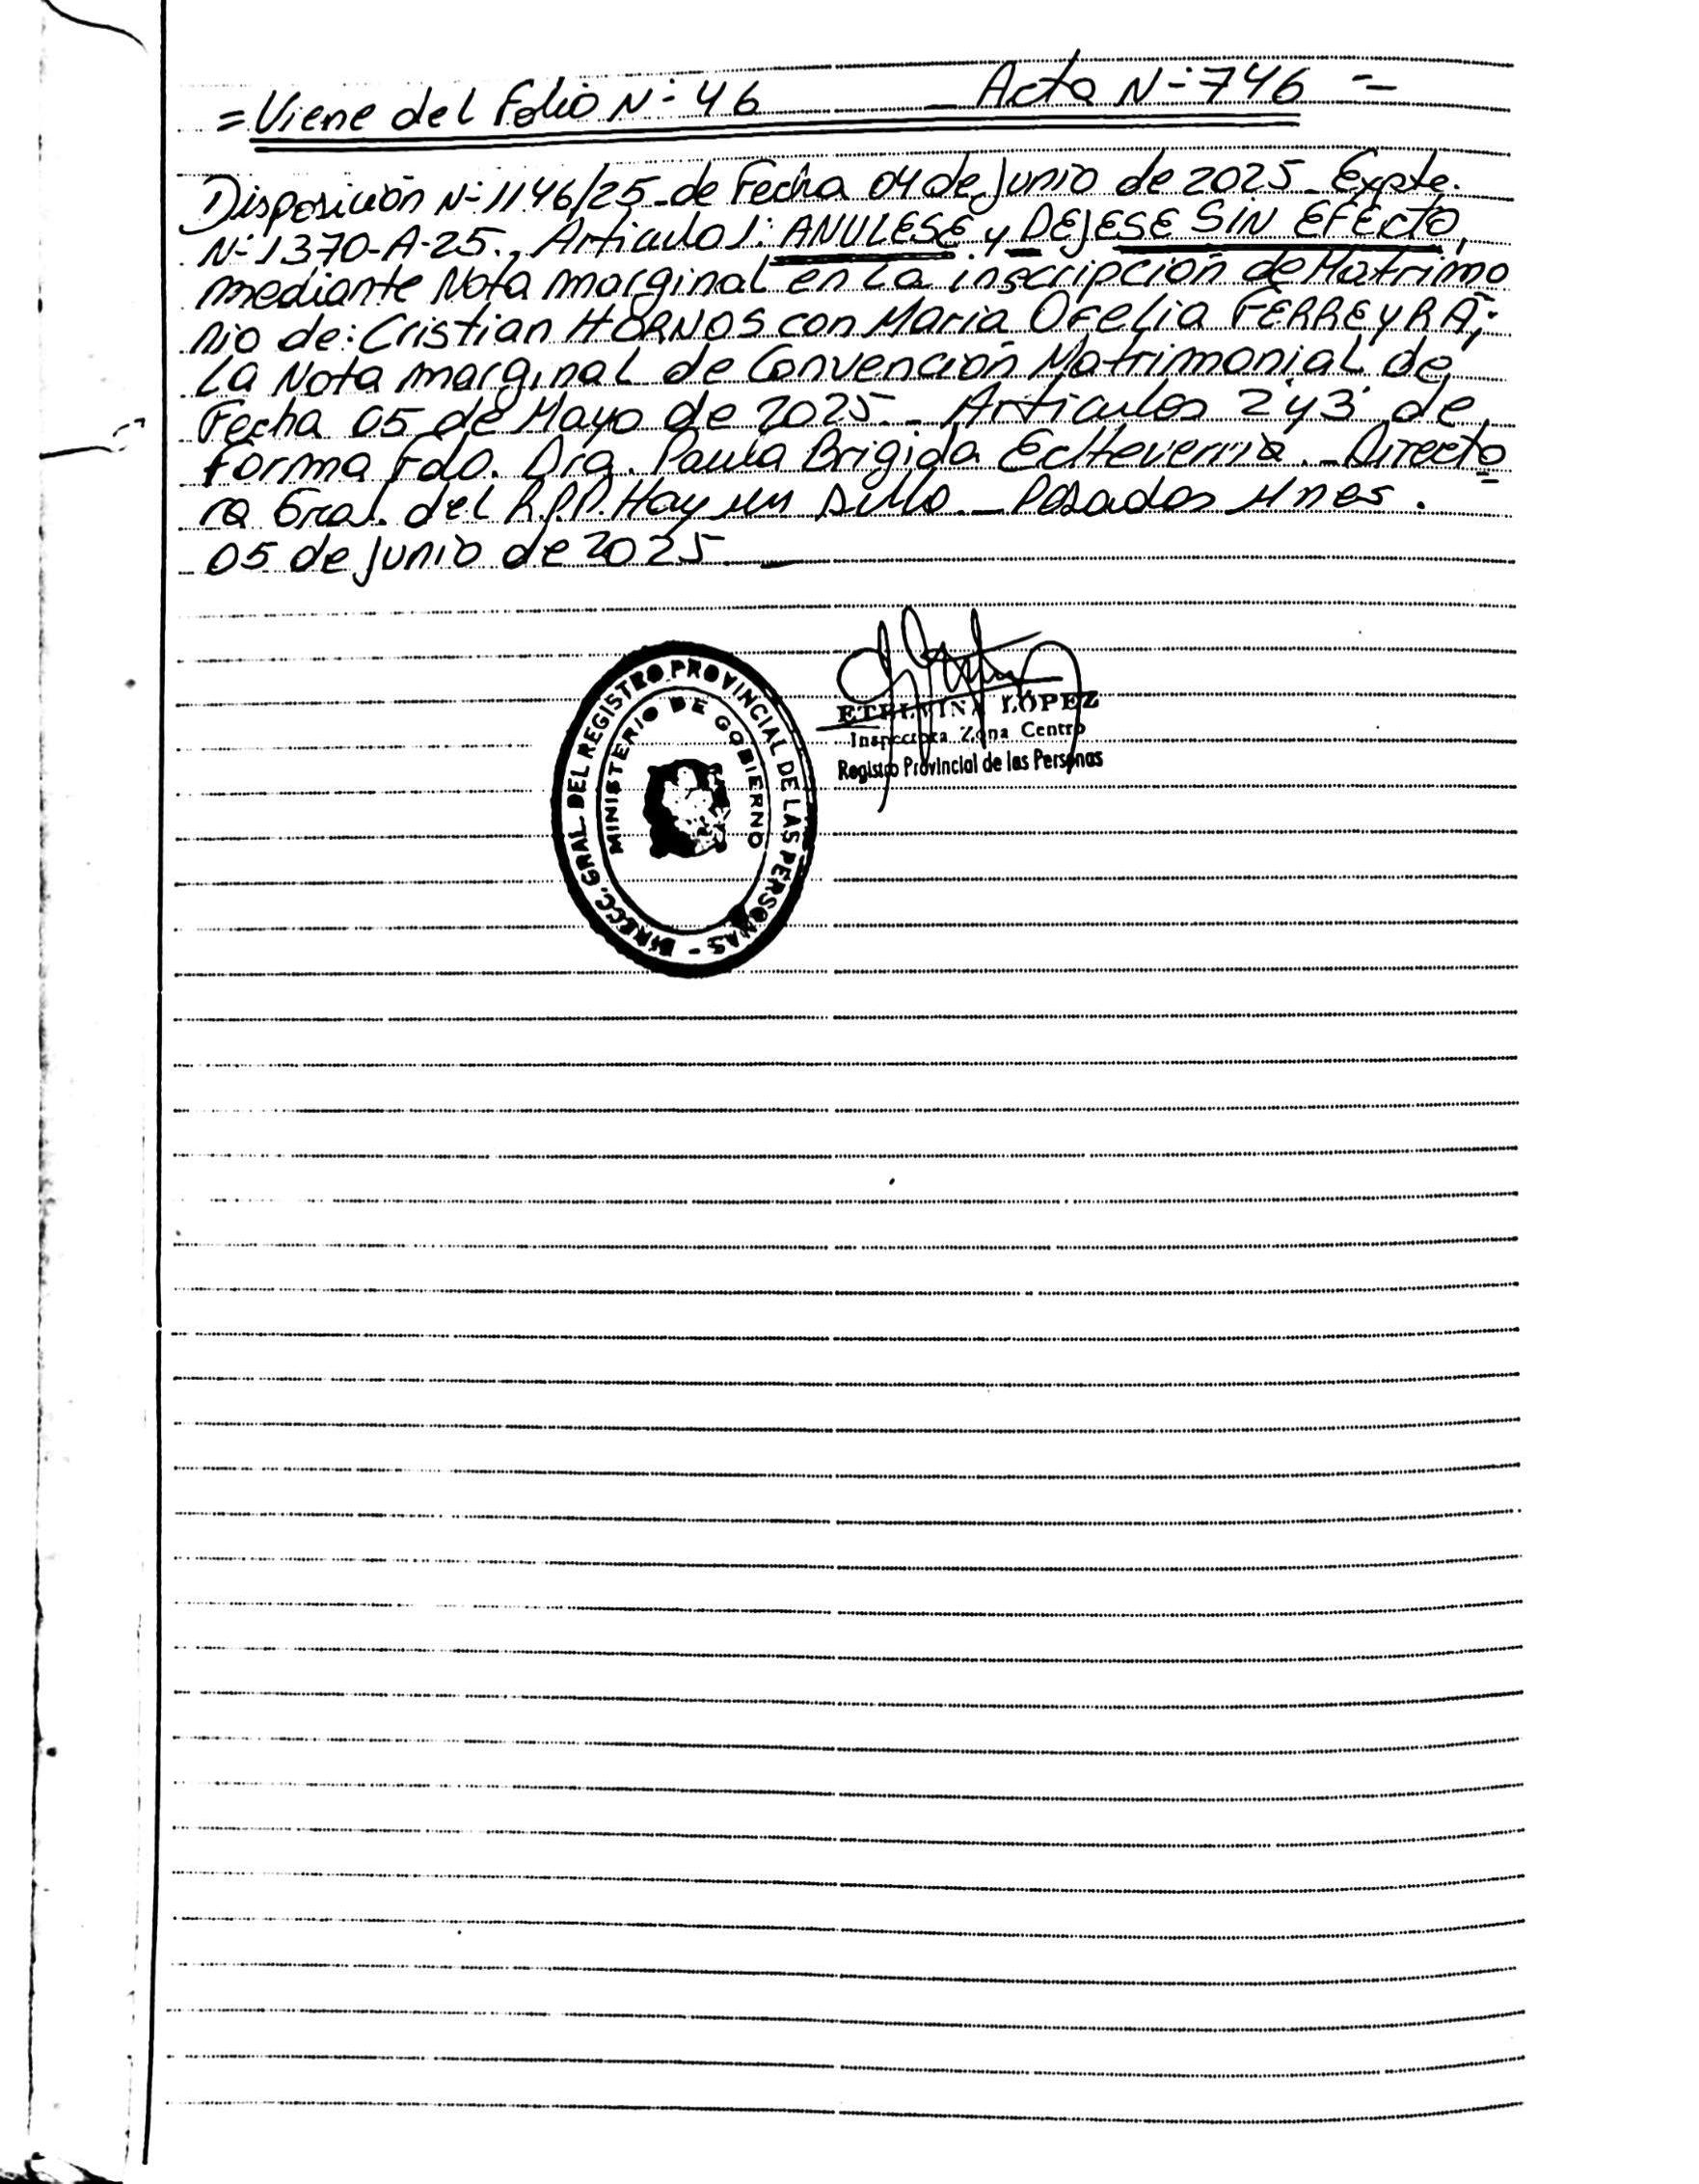 = Viene del Folio N-º 46 _ Acta N-º 746 =
Disposición N-º 1146/25 _ de Fecha 04 de Junio de 2025 _ Expte.
N-º 1370-A-25., Articulo 1: ANULESE y DEJESE SIN EFECTO,
mediante Nota marginal en La inscripción de Matrimo
nio de: Cristian HORNOS con Maria Ofelia FERREYRA;
La Nota marginal de Convención Matrimonial de
Fecha 05 de Mayo de 2025. _ Articulos 2 y 3 de
Forma Fdo. Dra. Paula Brigida Echeverria. _ Directo
ra Gral. del R.P.P. Hay un sello. _ Posadas Mnes.
05 de Junio de 2025 _
DIRECC. GRAL. DEL REGISTRO PROVINCIAL DE LAS PERSONAS -
MINISTERIO DE GOBIERNO
ETELVINA LÓPEZ
Inspectora Zona Centro
Registro Provincial de las Personas